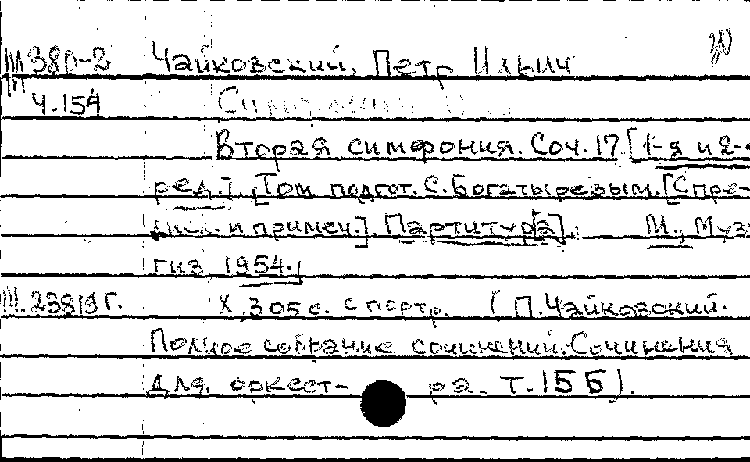 М380-2 Чайковский, Петр Ильич
Ч.154
Вторая симфония. Соч. 17. [1-я и 2-я
ред.]. [Том подгот. С. Богатыревым. [С пре-
и примеч.]. Партитура]. М., Муз-
гиз 1954.
23819г. X, 305 с. с портр. (П. Чайковский.
Полное собрание сочинений. Сочинения
для оркест- ра. Т. 15 Б).